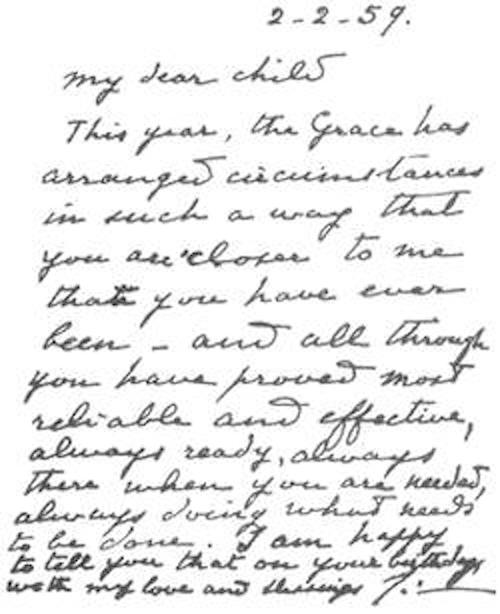 2-2-59.
My dear child
This year, the Grace has
arranged circumstances
in such a way that
you are closer to me
that you have ever
been - and all through
you have proved most
reliable and effective,
always ready, always
there when you are needed,
always doing what needs
to be done. I am happy
to tell you that on your birthday
with my love and blessings